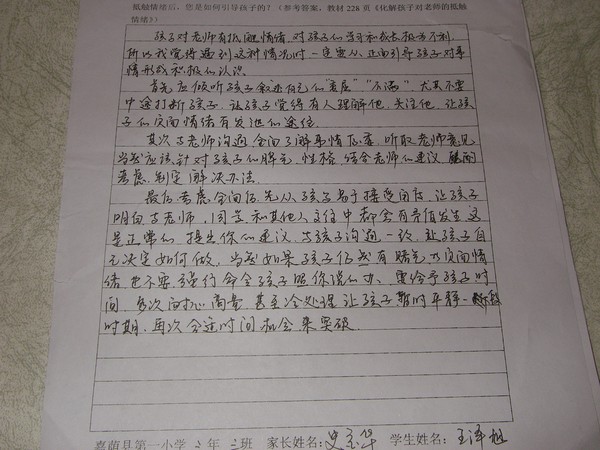 抵触情绪后，您是如何引导孩子的？（参考答案，教材228页《化解孩子对老师的抵触
情绪》）
孩子对老师有抵触情绪，对孩子们学习和成长极为不利，
所以我觉得遇到这种情况时一定要从正面引导孩子对事
情形成积极的认识。
首先应倾听孩子叙述自己的"委屈""不满"，尤其不要
中途打断孩子，让孩子觉得有人理解他，关注他，让孩
子的负面情绪有发泄的途径。
其次与老师沟通，全面了解事情原委，听取老师意见
当然应该针对孩子的脾气，性格，结合老师的建议
考虑，制定解决办法。
最后考虑全面后，先从孩子易于接受角度，让孩子
明白与老师，同学和其他人交往中都会有矛盾发生这
是正常的，提出你的建议，与孩子沟通一致，让孩子自
己决定如何做，当然如果孩子仍然有曙光的负面情
绪也不要强行命令孩子照你说的办，要给予孩子时
间，多次商量，甚至冷处理让孩子暂时平静一
时期，再次合适时间机会来突破．
嘉荫县第一小学 2年二班 家长姓名：史 华 学生姓名：王泽旭